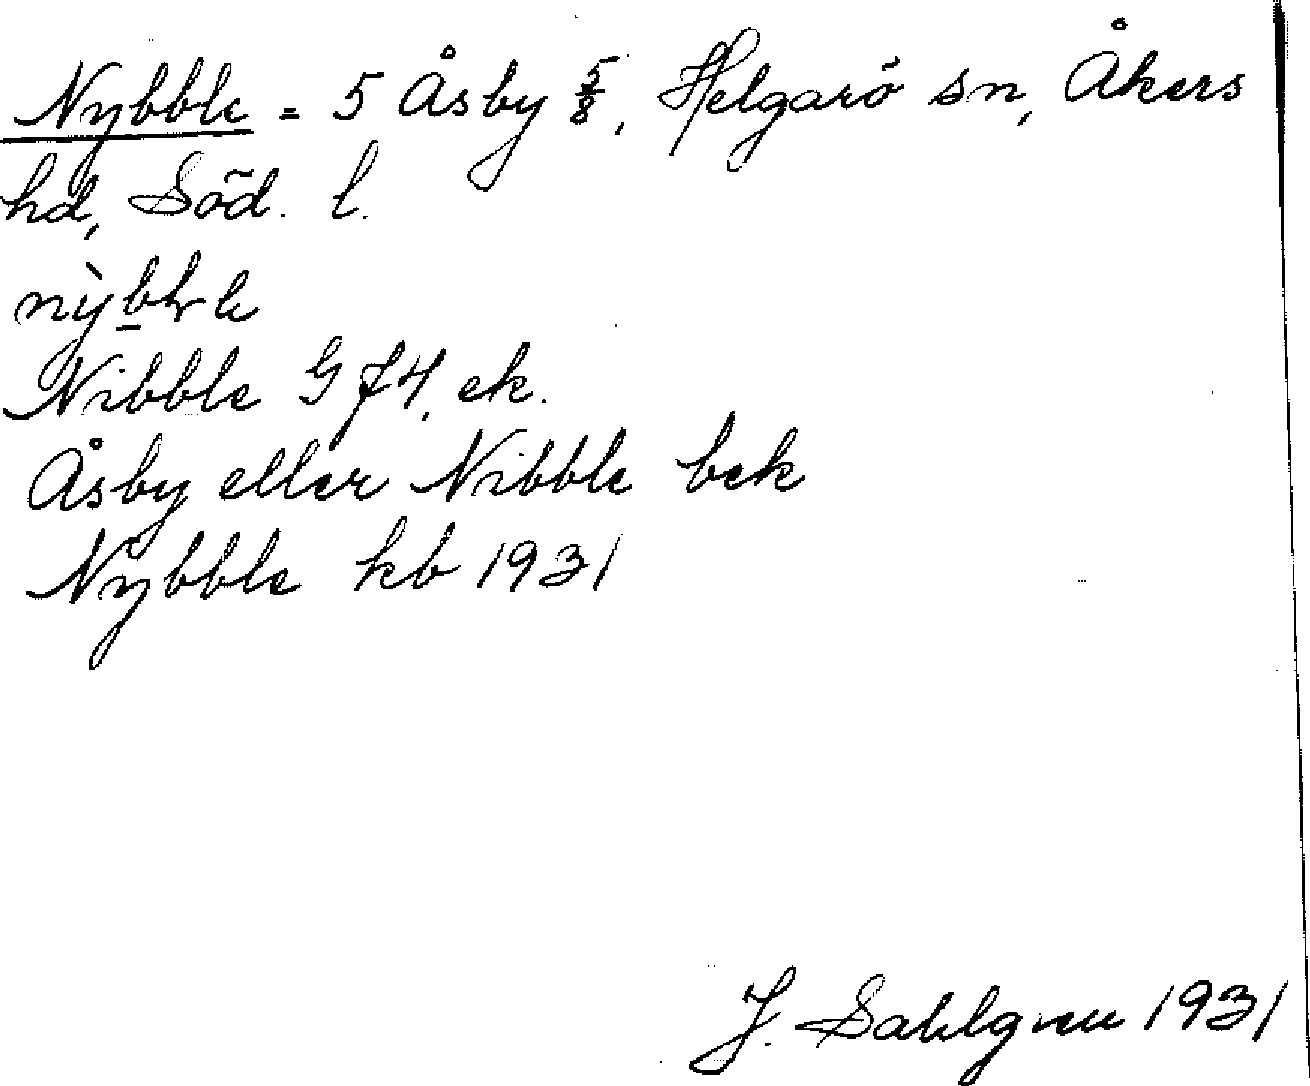 Nybble = 5 Åsby 5/8, Helgarö sn, Åkers
hd, Söd. l.
Nibble G J4, ek.
Åsby eller Nibble bek
Nybble kb 1931
J. Sahlgren 1931